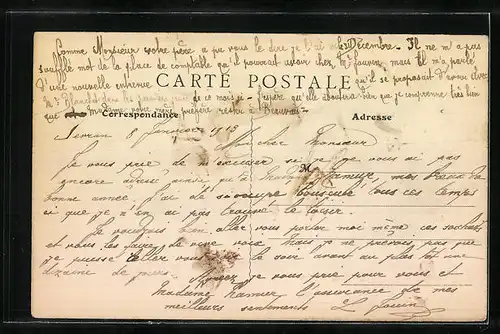 Comme Monsieur votre père a pu vous le dire je l'ai vu Décembre. Il ne m'a pas
soufflé mot de la place de comptable qu'il pourrait avoir chez M. mais il m'a parlé
d'une nouvelle entrevue qu'il se proposait d'avoir avec
M. Blanchet dans les premiers jours de ce mois ci. J'espère qu'elle aboutira bien que je comprenne très bien
que votre mère préfère rester à Beauvais.
CARTE POSTALE
Correspondance
Adresse
8 Janvier 1913
Mon cher Monsieur
Je vous prie de m'excuser si je ne vous ai pas
encore adressé ainsi qu'à Madame mes vœux de
bonne année. J'ai été si bousculé tous ces temps
ci que je n'en ai pas trouvé le loisir.
M
Je voudrais bien aller vous porter moi même ces souhaits
et vous les faire de vive voix mais je ne prévois pas que
je puisse aller vous le soir avant au plus tôt une
dizaine de jours. je vous prie pour vous et
Madame l'assurance de mes
meilleurs sentiments